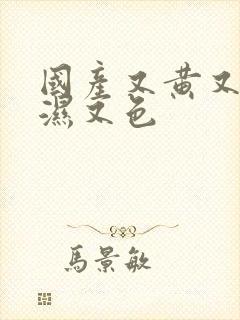 國產又黄又
濕又色
馬景敏